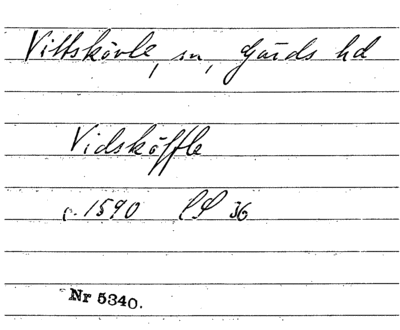 Vittskövle, sn, Gärds hd
Vidsköffle
c. 1590 36
Nr 5340.